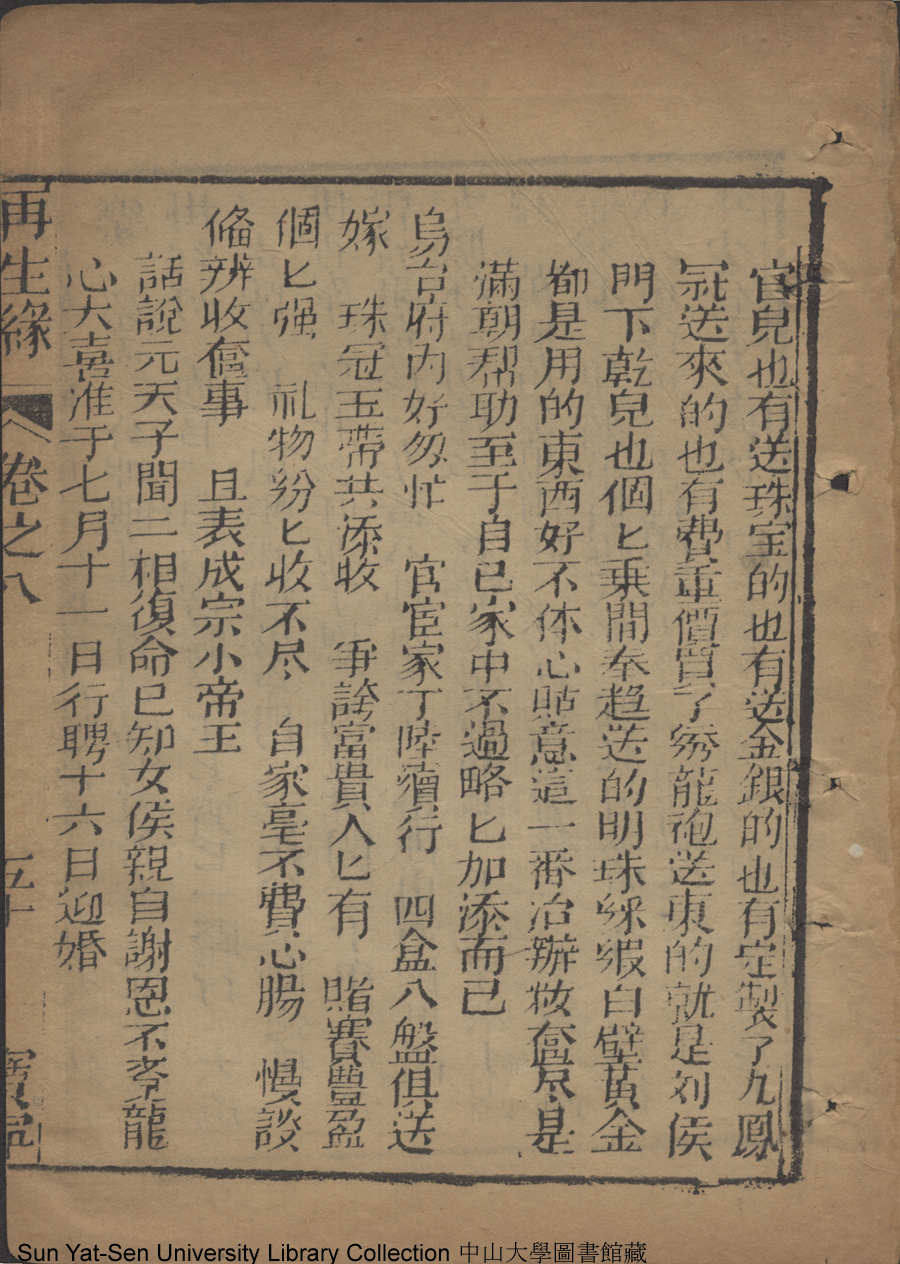 官兒也有送珠宝的也有送金銀的也有定製了九鳳
冠送來的也有費重價買了綉龍袍送來的就是刘侯
門下乾兒也個匕乗間奉趋送的明珠綵緞白壁黃金
都是用的東西好不体心貼意這一番冶辦妝奩尽是
滿朝帮助至于自已家中不過略匕加添而已
烏台府内好匆忙 官宦家丁陸續行 四盒八盤俱送
嫁 珠冠玉帶共添收 爭誇富貴人匕有 賭賽豐盈
個匕强 礼物紛匕收不尽 自家毫不費心腸 慢談
俻辨收奩事 且表成宗小帝王
話說元天子聞二相復命已知女侯親自謝恩不来龍
心大喜准于七月十一日行聘十六日迎婚
再生緣 卷之八 五十 寶寧
Sun Yat-Sen University Library Collection 中山大學圖書館藏